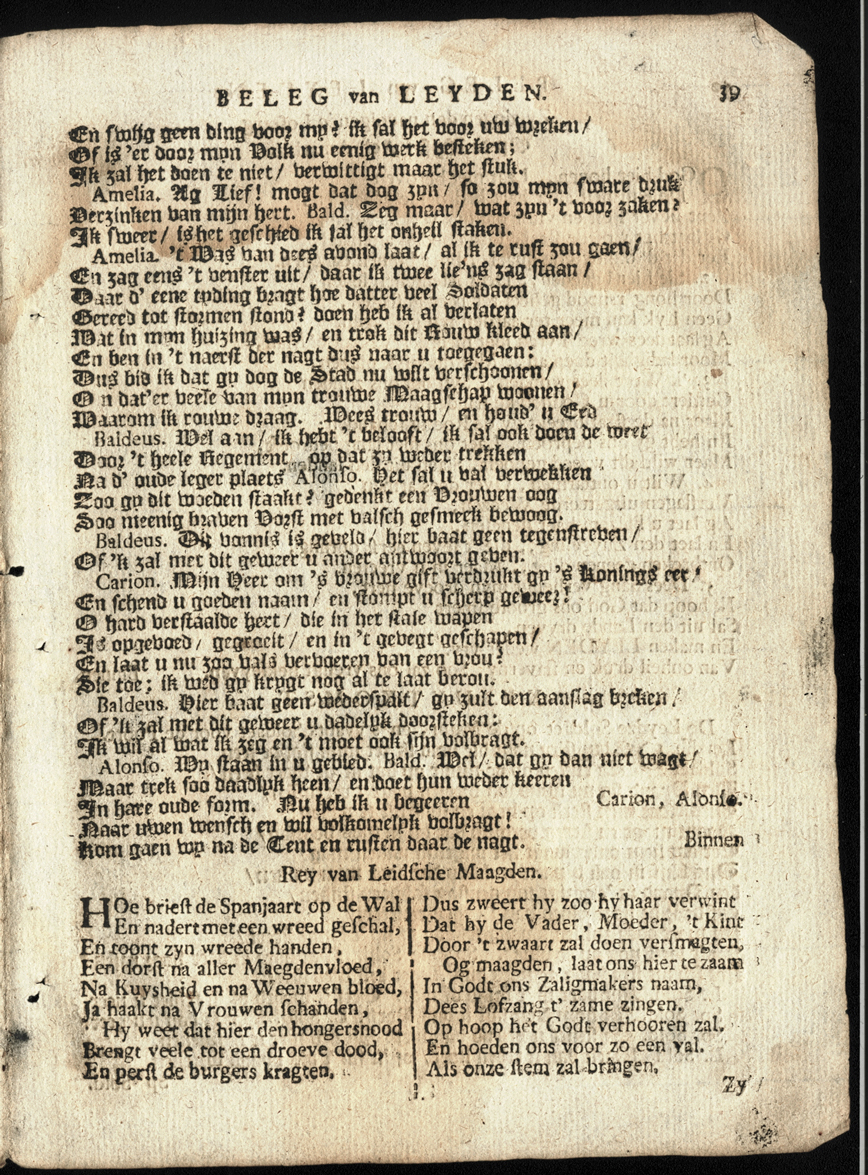 BELEG van LEYDEN. 39
En swijg geen ding voor my? ik sal het voor uw wreken/
Of is 'er door myn Volk nu eenig werk besteken;
Ik zal het doen te niet/ verwittigt maar het stuk.
Amelia. Ag Lief! mogt dat dog zyn/ so zou myn sware druk
Verzinken van mijn hert. Bald. Zeg maar/ wat zyn 't voor zaken?
Ik sweer/ is het geschied ik sal het onheil staken.
Amelia. 't Was van dees avond laat/ al ik te rust zou gaen/
En zag eens 't venster uit/ daar ik twee lie'ns zag staan/
Daar d' eene tyding bragt hoe datter veel Soldaten
Gereed tot stormen stond? doen heb ik al verlaten
Wat in myn huizing was/ en trok dit Rouw kleed aan/
En ben in 't naerst der nagt dus naar u toegegaen:
Dus bid ik dat gy dog de Stad nu wilt verschoonen/
O n dat'er veele van myn trouwe Maagschap woonen/
Waarom ik rouwe draag. Wees trouw/ en houd' u Eed
Baldeus. Wel aan/ ik hebt 't belooft/ ik sal ook doen de weet
Door 't heele Regement, op dat zy weder trekken
Na d' oude leger plaets Alonso. Het sal u val verwekken
Zoo gy dit woeden staakt? gedenkt een Vrouwen oog
Soo meenig braven Vorst met valsch gesmeek bewoog.
Baldeus. Dit vonnis is geveld/ hier baat geen tegenstreven/
Of 'k zal met dit geweer u ander antwoort geven.
Carion. Mijn Heer om 's vrouwe gift verdrukt gy 's Konings eer/
En schend u goeden naam/ en stompt u scherp geweer!
O hard verstaalde hert/ die in het stale wapen
Is opgevoed/ gegroeit/ en in 't gevegt geschapen/
En laat u nu zoo vals vervoeren van een vrou?
Sie toe; ik wed gy krygt nog al te laat berou.
Baldeus. Hier baat geen wederspalt/ gy zult den aanslag breken/
Of 'k zal met dit geweer u dadelyk doorsteken:
Ik wil al wat ik zeg en 't moet ook sijn volbragt.
Alonso. Wy staan in u gebied. Bald. Wel/ dat gy dan niet wagt/
Maar trek soo daadlyk heen/ en doet hun weder keeren
In hare oude form. Nu heb ik u begeeren Carion, Alonso.
Naar uwen wensch en wil volkomelyk volbragt!
Kom gaen wy na de Tent en rusten daar de nagt. Binnen
Rey van Leidsche Maagden.
HOe briest de Spanjaart op de Wal
En nadert met een wreed geschal,
En toont zyn wreede handen,
Een dorst na aller Maegdenvloed,
Na Kuysheid en na Weeuwen bloed,
Ja haakt na Vrouwen schanden,
Hy weet dat hier den hongersnood
Brengt veele tot een droeve dood,
En perst de burgers kragten.
Dus zweert hy zoo hy haar verwint
Dat hy de Vader, Moeder, 't Kint
Door 't zwaart zal doen versmagten,
Og maagden, laat ons hier te zaam
In Godt ons Zaligmakers naam,
Dees Lofzang t' zame zingen.
Op hoop het Godt verhooren zal.
En hoeden ons voor zo een val.
Als onze stem zal bringen.
Zy